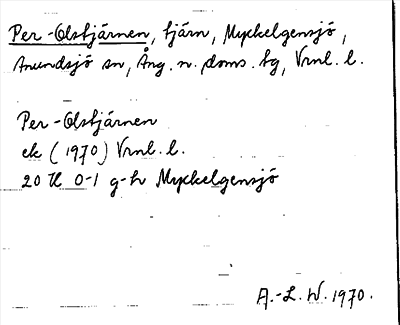 Per-Olstjärnen, tjärn, Myckelgensjö,
Anundsjö sn, Ång. n. doms. tg, Vrnl. l.
Per-Olstjärnen
ek (1970) Vrnl. l.
20 H 0-1 g-h Myckelgensjö
A.-L. W. 1970.